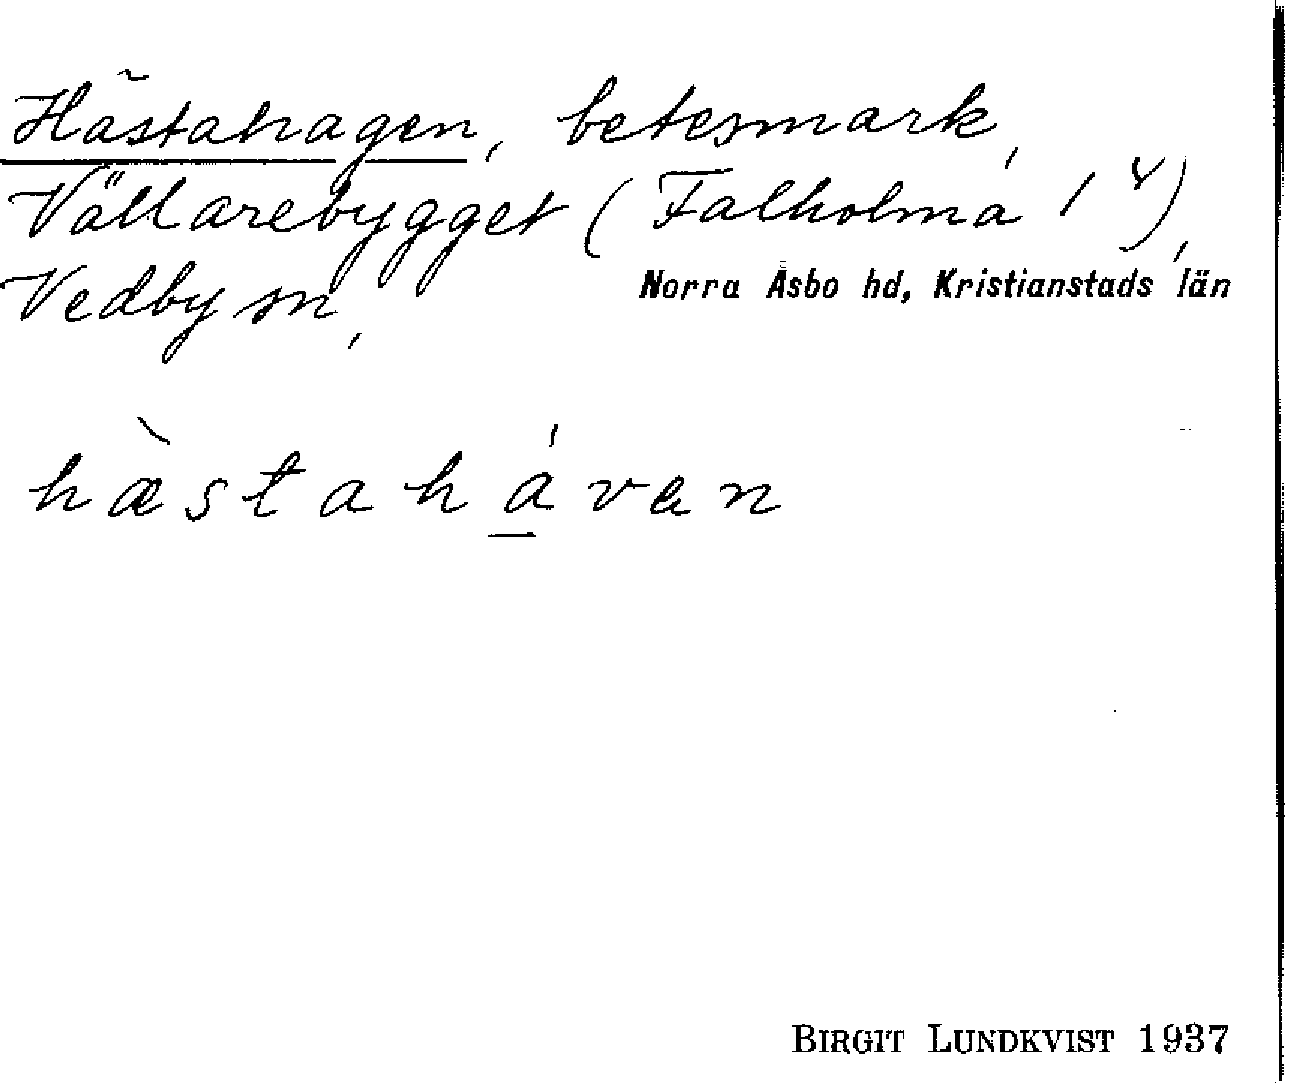 Hästahagen, betesmark,
Vällarebygget (Falholma 1 ⁴),
Vedby sn,
Norra Åsbo hd, Kristianstads län
hæ̀stahávan
BIRGIT LUNDKVIST 1937